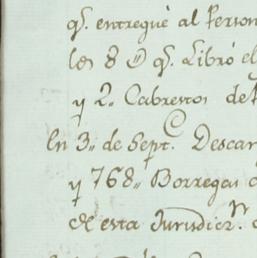 qᵉ. entregué al Person
los 8 qᵉ. Libró el
y 2. Cabrestos de
En 3,, de Septᵉ. Descar
y 768,, Borregas
de esta Jurisdicⁿ.